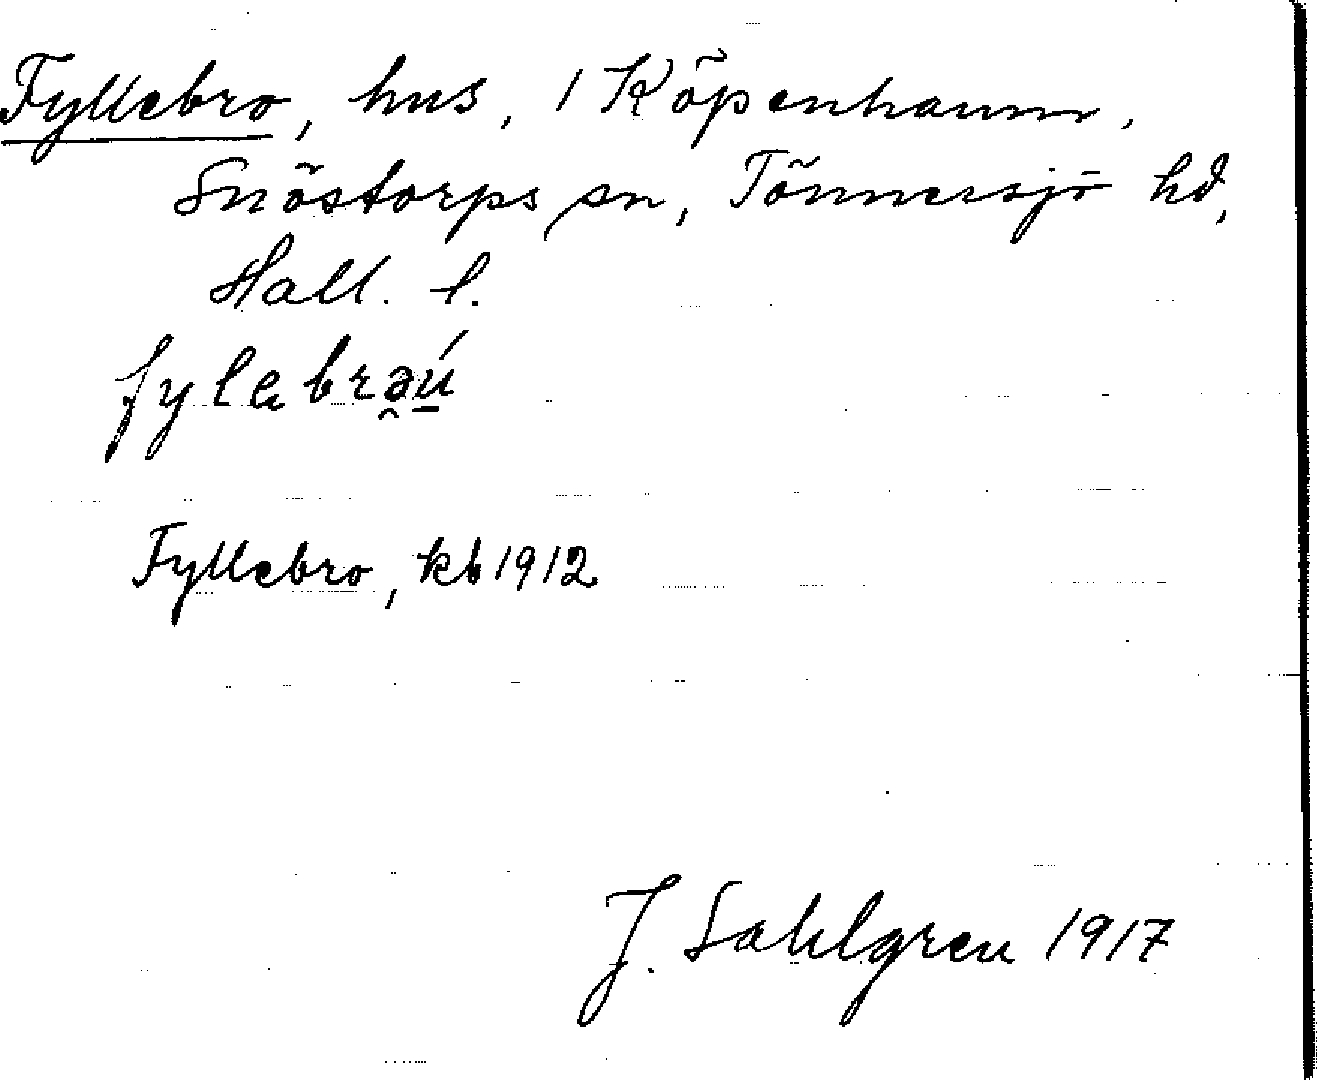 Fyllebro, hus, 1 Köpenhamn,
Snöstorps sn, Tönnersjö hd,
Hall. l.
Fyllebro, kb 1912
J. Sahlgren 1917